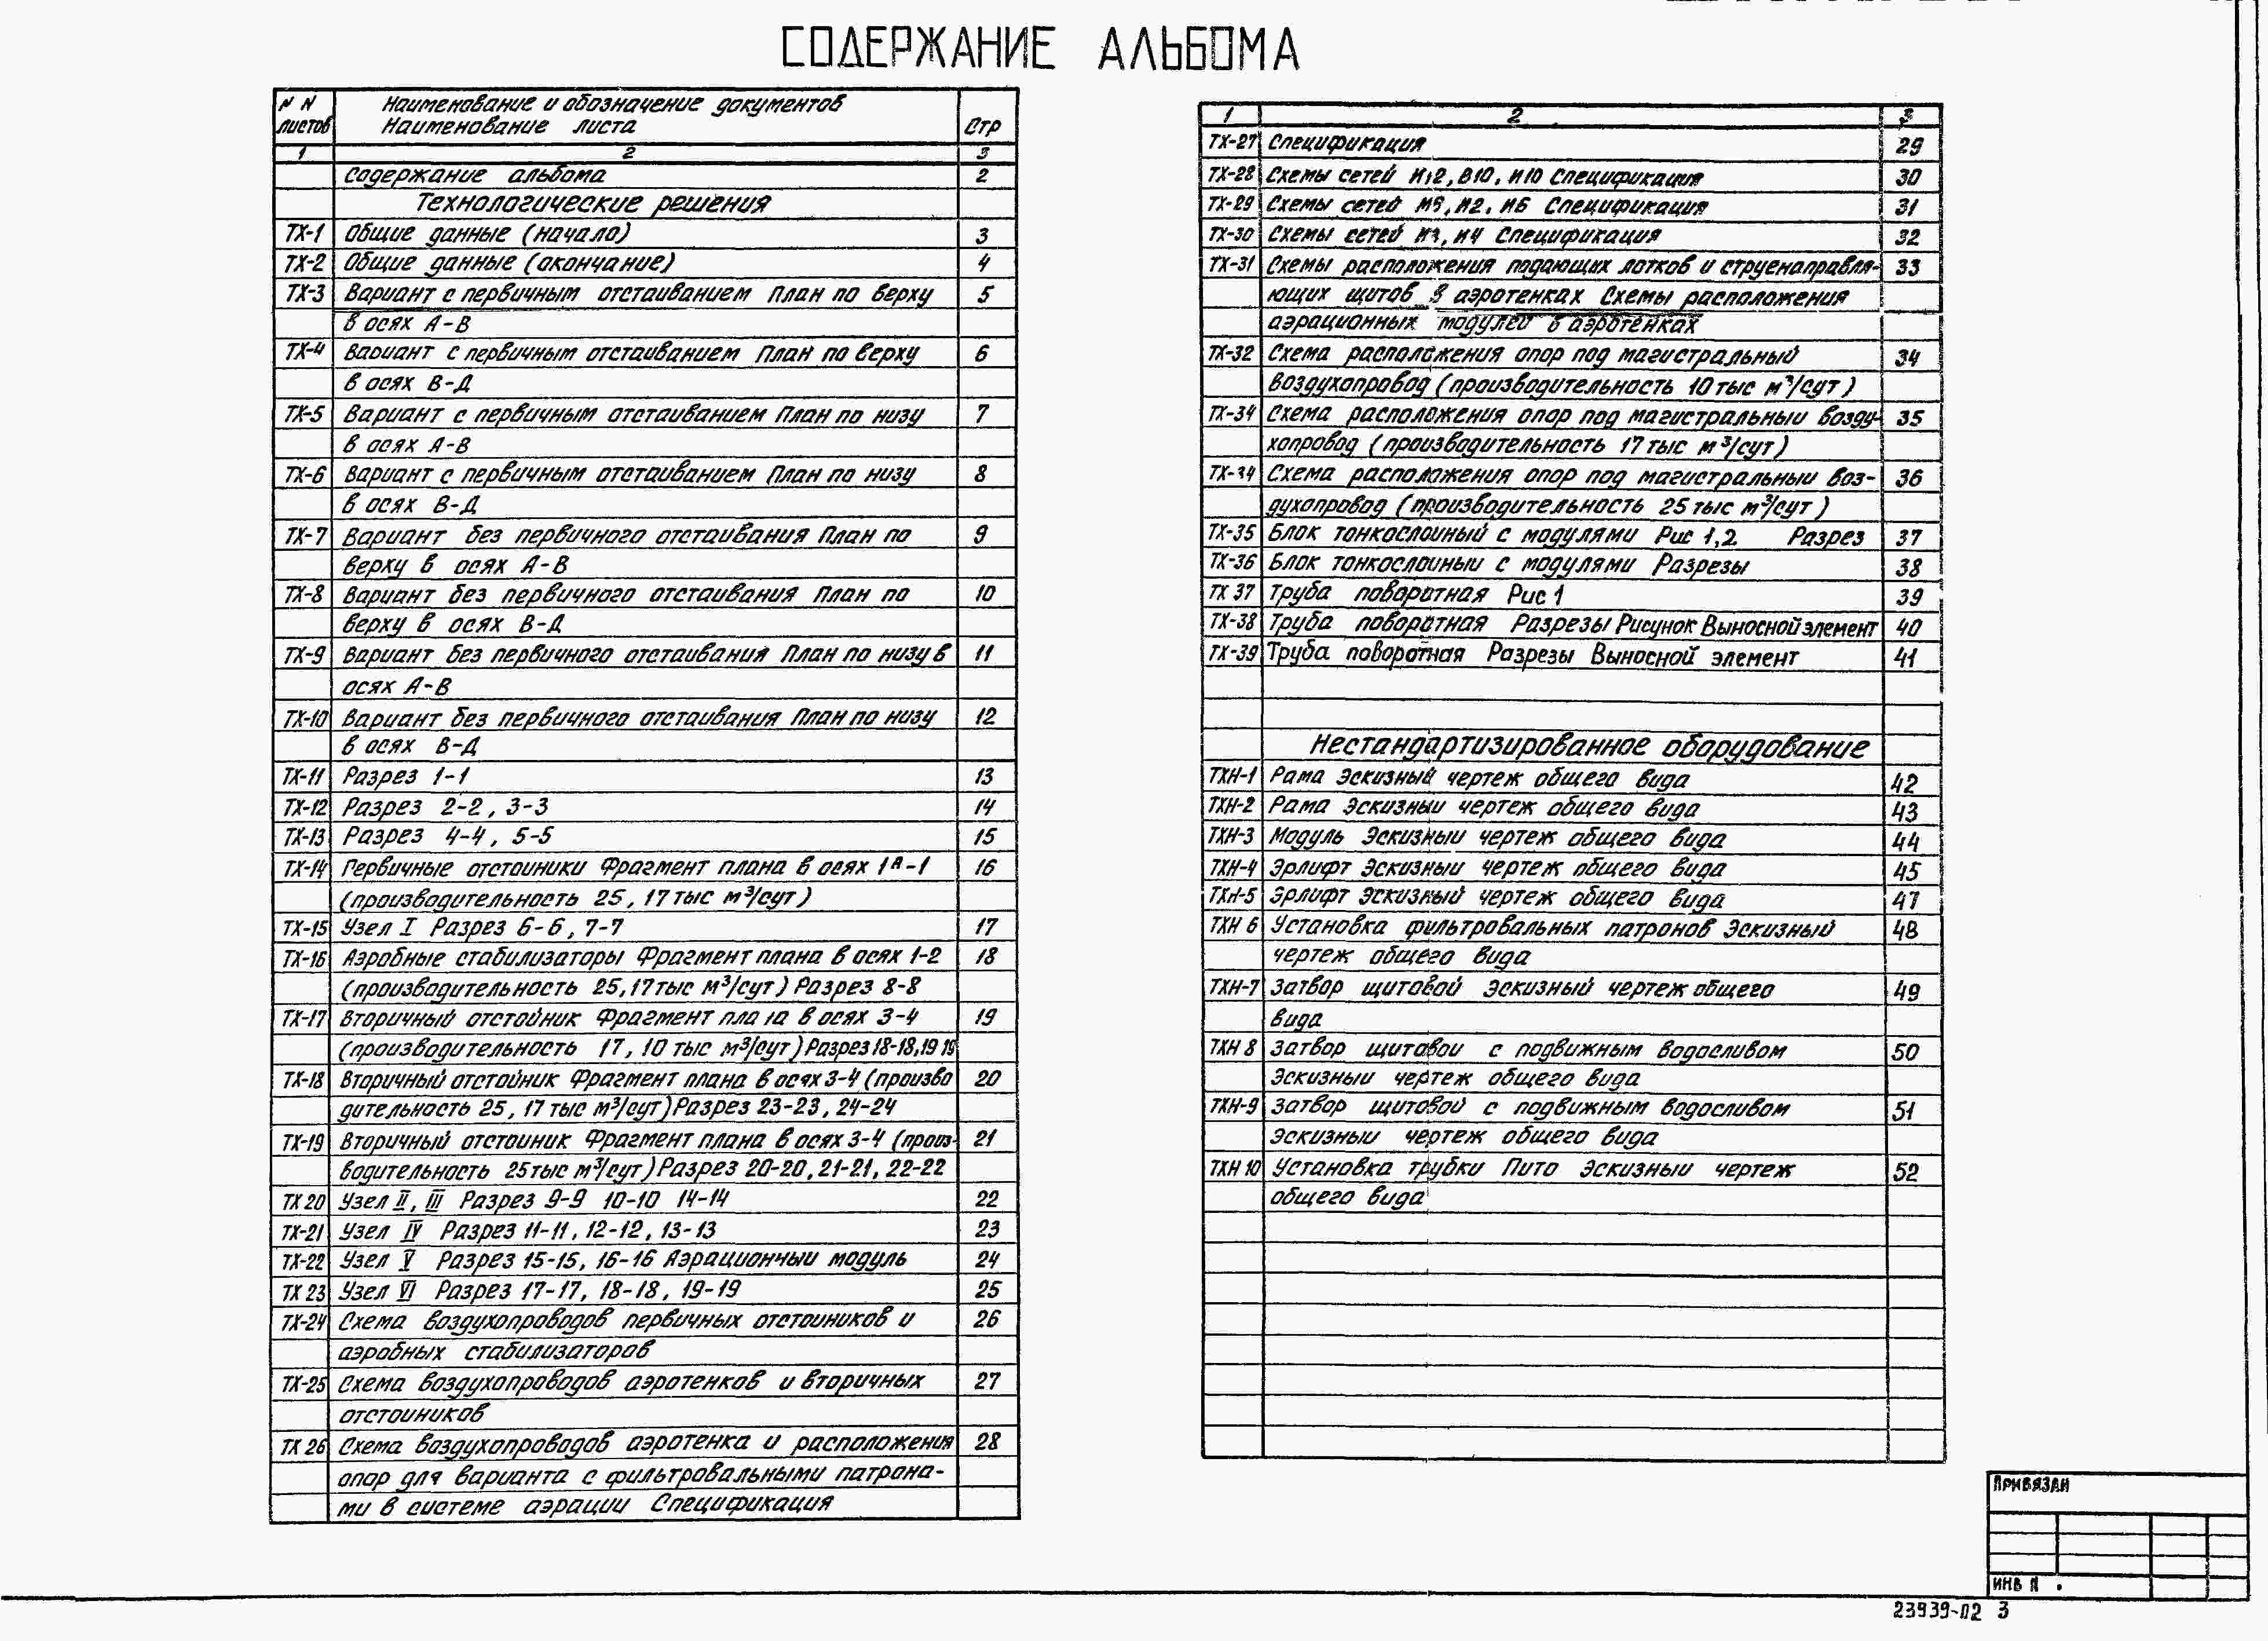 СОДЕРЖАНИЕ АЛЬБОМА
N N листов Наименование и обозначение документов Наименование листа Стр
1 2 3
Содержание альбома 2
Технологические решения
ТХ-1 Общие данные (начало) 3
ТХ-2 Общие данные (окончание) 4
ТХ-3 Вариант с первичным отстаиванием План по верху 5
в осях А-В
ТХ-4 Вариант с первичным отстаиванием План по верху 6
в осях В-Д
ТХ-5 Вариант с первичным отстаиванием План по низу 7
в осях А-В
ТХ-6 Вариант с первичным отстаиванием План по низу 8
в осях В-Д
ТХ-7 Вариант без первичного отстаивания План по 9
верху в осях А-В
ТХ-8 Вариант без первичного отстаивания План по 10
верху в осях В-Д
ТХ-9 Вариант без первичного отстаивания План по низу в 11
осях А-В
ТХ-10 Вариант без первичного отстаивания План по низу 12
в осях В-Д
ТХ-11 Разрез 1-1 13
ТХ-12 Разрез 2-2, 3-3 14
ТХ-13 Разрез 4-4, 5-5 15
ТХ-14 Первичные отстоиники Фрагмент плана в осях 1А-1 16
(производительность 25, 17 тыс м³/сут)
ТХ-15 Узел I Разрез 6-6, 7-7 17
ТХ-16 Аэробные стабилизаторы Фрагмент плана в осях 1-2 18
(производительность 25, 17 тыс м³/сут) Разрез 8-8
ТХ-17 Вторичный отстойник Фрагмент плана в осях 3-4 19
(производительность 17, 10 тыс м³/сут) Разрез 18-18, 19 19
ТХ-18 Вторичный отстойник Фрагмент плана в осях 3-4 (произво 20
дительность 25, 17 тыс м³/сут) Разрез 23-23, 24-24
ТХ-19 Вторичный отстоиник Фрагмент плана в осях 3-4 (произ- 21
водительность 25 тыс м³/сут) Разрез 20-20, 21-21, 22-22
ТХ 20 Узел II, III Разрез 9-9 10-10 14-14 22
ТХ-21 Узел IV Разрез 11-11, 12-12, 13-13 23
ТХ-22 Узел V Разрез 15-15, 16-16 Аэрационныи модуль 24
ТХ 23 Узел VI Разрез 17-17, 18-18, 19-19 25
ТХ-24 Схема воздухопроводов первичных отстоиников и 26
аэробных стабилизаторов
ТХ-25 Схема воздухопроводов аэротенков и вторичных 27
отстоиников
ТХ 26 Схема воздухопроводов аэротенка и расположения 28
опор для варианта с фильтровальными патрона-
ми в системе аэрации Спецификация
1 2 3
ТХ-27 Спецификация 29
ТХ-28 Схемы сетей И12, В10, И10 Спецификация 30
ТХ-29 Схемы сетей И5, И2, И6 Спецификация 31
ТХ-30 Схемы сетей И3, И4 Спецификация 32
ТХ-31 Схемы расположения подающих лотков и струенаправля- 33
ющих щитов в аэротенках Схемы расположения
аэрационных модулей в аэротенках
ТХ-32 Схема расположения опор под магистральный 34
воздухопровод (производительность 10 тыс м³/сут)
ТХ-34 Схема расположения опор под магистральныи возду- 35
хопровод (производительность 17 тыс м³/сут)
ТХ-34 Схема расположения опор под магистральныи воз- 36
духопровод (производительность 25 тыс м³/сут)
ТХ-35 Блок тонкослоиный с модулями Рис 1,2 Разрез 37
ТХ-36 Блок тонкослоиныи с модулями Разрезы 38
ТХ 37 Труба поворотная Рис 1 39
ТХ-38 Труба поворотная Разрезы Рисунок Выносной элемент 40
ТХ-39 Труба поворотная Разрезы Выносной элемент 41
Нестандартизированное оборудование
ТХН-1 Рама Эскизный чертеж общего вида 42
ТХН-2 Рама Эскизныи чертеж общего вида 43
ТХН-3 Модуль Эскизныи чертеж общего вида 44
ТХН-4 Эрлифт Эскизныи чертеж общего вида 45
ТХН-5 Эрлифт Эскизный чертеж общего вида 47
ТХН 6 Установка фильтровальных патронов Эскизный 48
чертеж общего вида
ТХН-7 Затвор щитовой Эскизный чертеж общего 49
вида
ТХН 8 Затвор щитовои с подвижным водосливом 50
Эскизныи чертеж общего вида
ТХН-9 Затвор щитовой с подвижным водосливом 51
Эскизныи чертеж общего вида
ТХН 10 Установка трубки Пито Эскизныи чертеж 52
общего вида
ПРИВЯЗАН
ИНВ N
23939-02 3